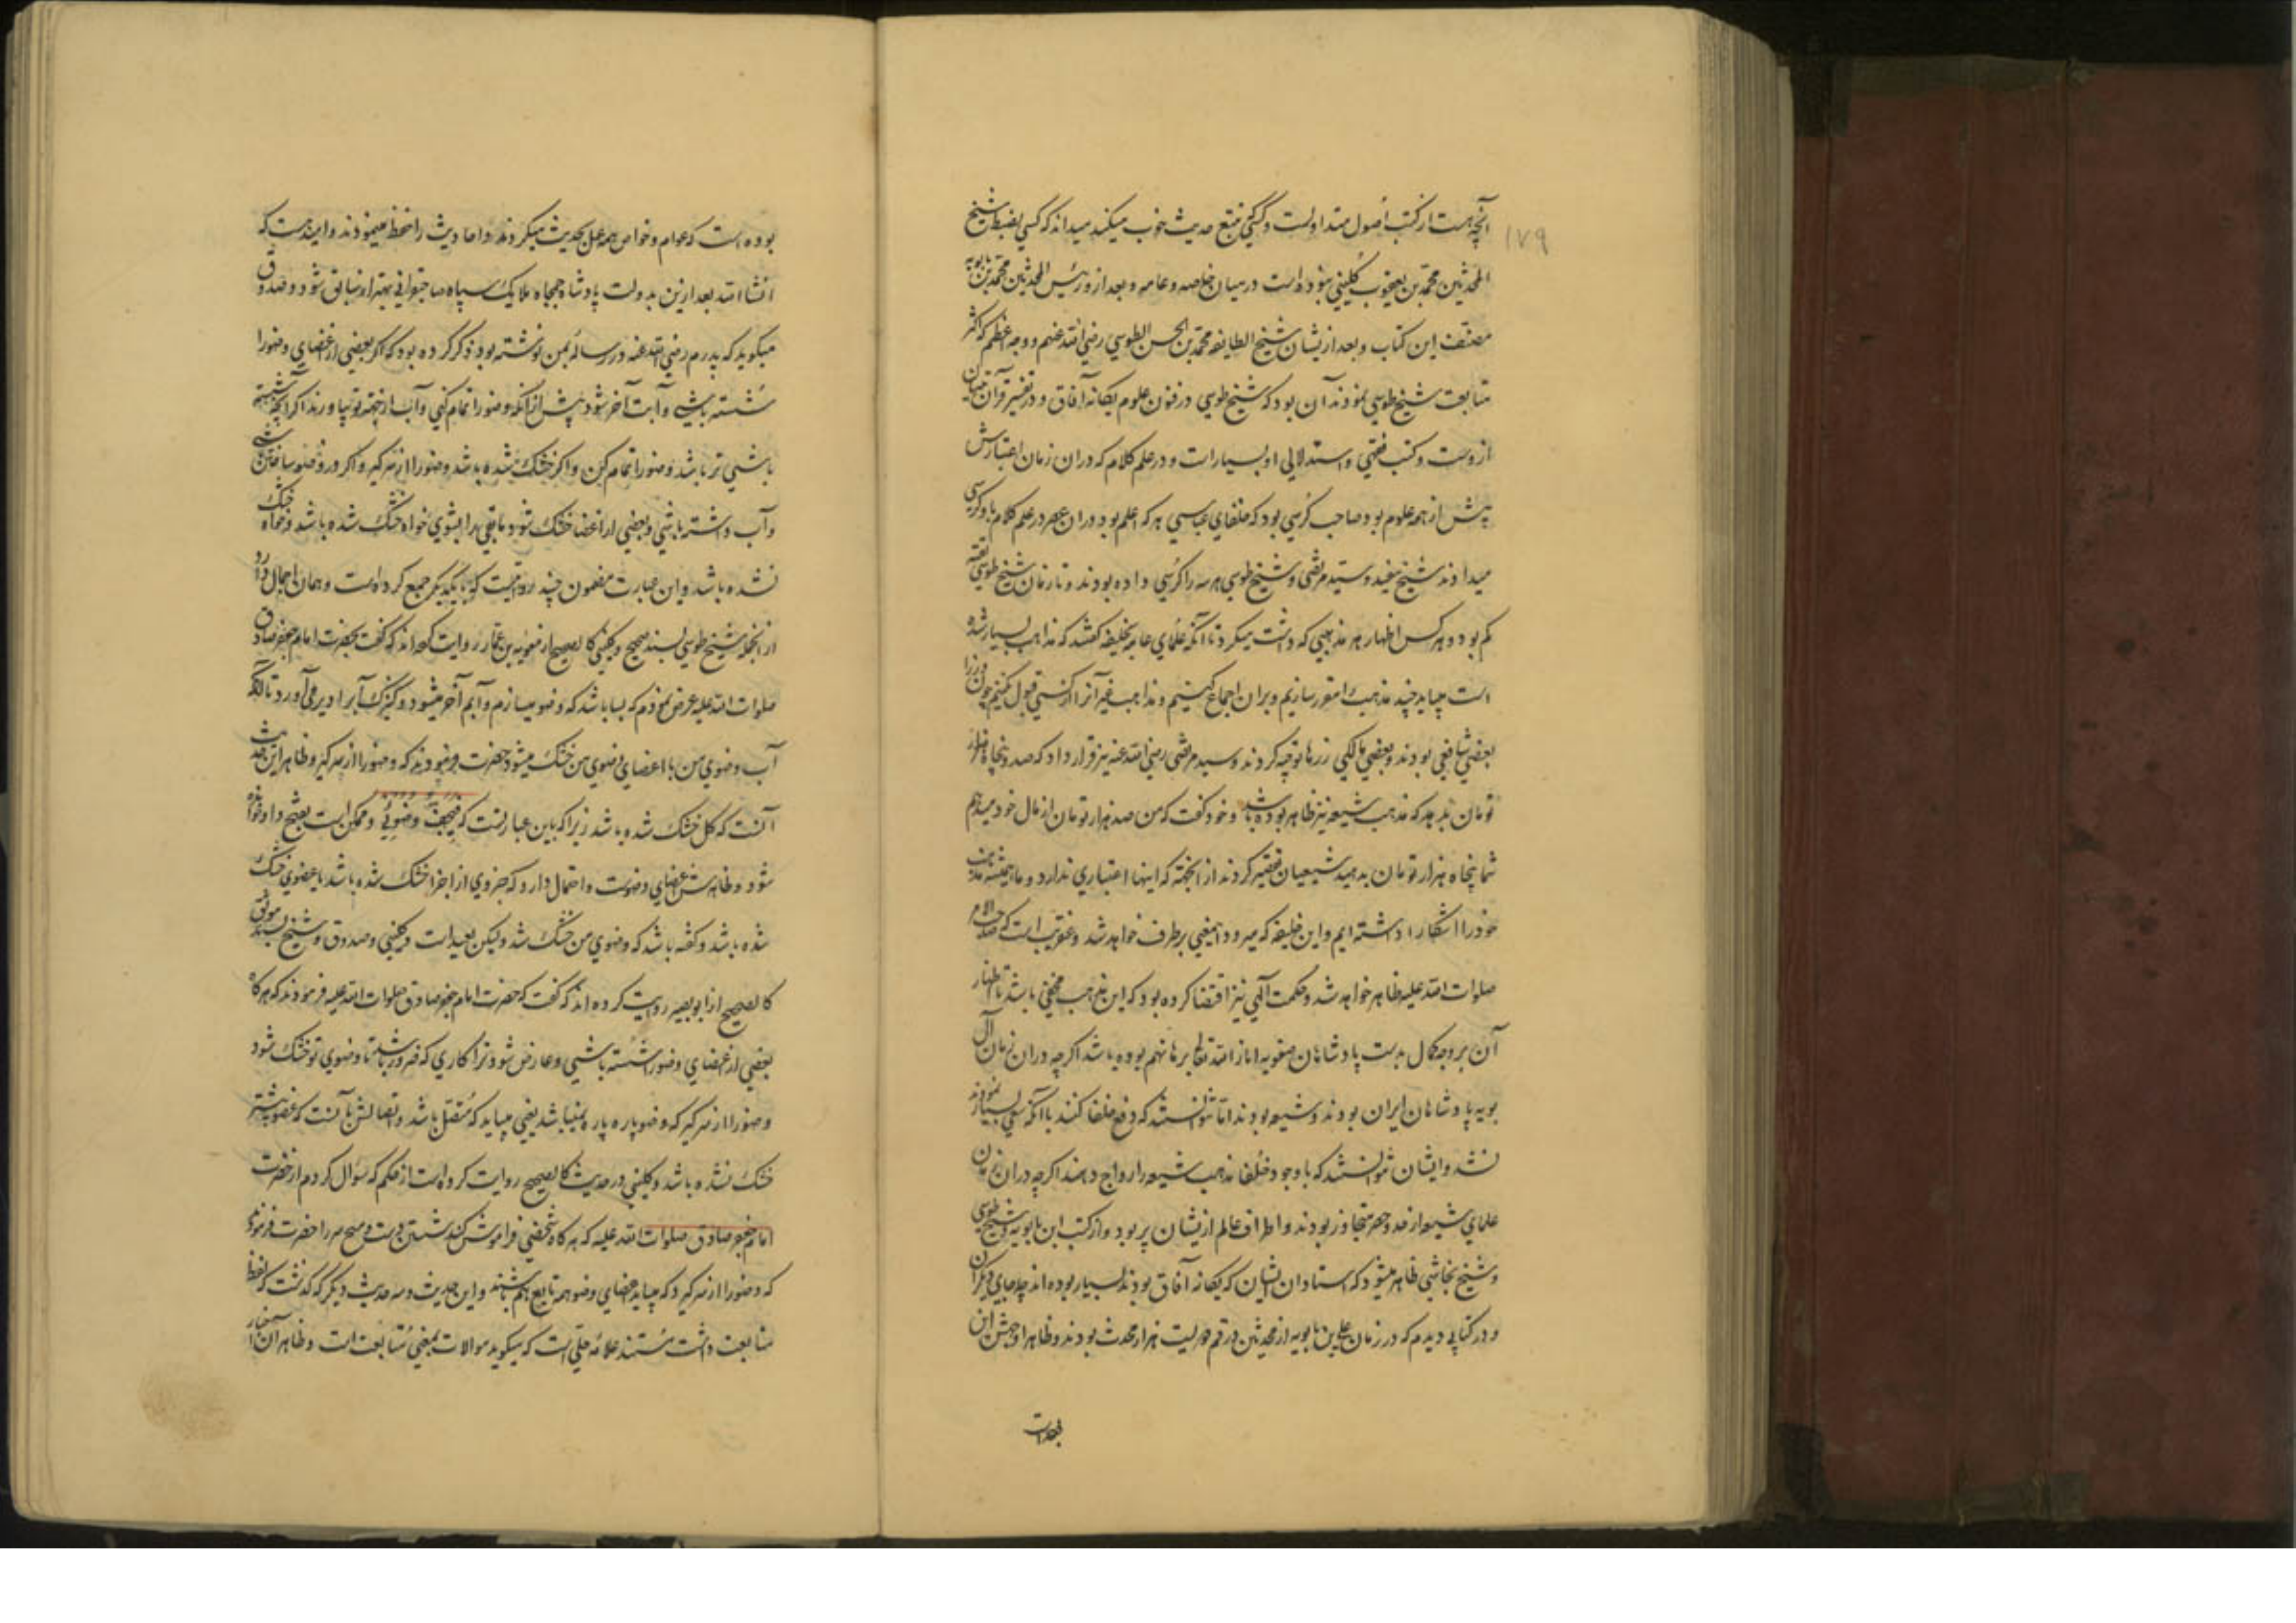 ۱۷۹
آنچه هست از کتب اصول متداولست و کسی تتبع حدیث خوب میکند میداند که کسی بضبط شیخ
المحدثین محمد بن یعقوب کلینی نبوده است در میان خاصه و عامه و بعد ازو رئیس المحدثین محمد بن بابویه
مصنف این کتاب و بعد ازیشان شیخ الطایفه محمد بن الحسن الطوسی رضی الله عنهم و وجه اعظم که اکثر
متابعت شیخ طوسی نمودند آن بود که شیخ طوسی در فنون علوم یکانه آفاق و در تفسیر قرآن تبیان
ازوست و کتب فقهی و استدلالی او بسیارست و در علم کلام که در ان زمان اعتبارش
بیش از همه علوم بود صاحب کرسی بود که خلفای عباسی هر که اعلم بود دران عصر در علم کلام باو کرسی
میدادند شیخ مفید و سید مرتضی و شیخ طوسی هر سه را کرسی داده بودند و تا زمان شیخ طوسی تقیه
کم بود و هر کس اظهار هر مذهبی که داشت میکرد تا آنکه علمای عامه بخلیفه گفتند که مذاهب بسیار شده
است میباید چند مذهب را مقرر سازیم و بران اجماع کنیم و مذاهب غیر آنرا از کسی قبول نکنیم چون وزرا
بعضی شافعی بودند و بعضی مالکی زرها توجیه کردند و سید مرتضی رضی الله عنه نیز قرار داد که صد و پنجاه هزار
تومان بدهد که مذهب شیعه نیز ظاهر بوده باشد و خود گفت که من صد هزار تومان از مال خود میدهم
شما پنجاه هزار تومان بدهید شیعیان تقصیر کردند از انجهته که اینها اعتباری ندارد و ما همیشه مذهب
خود را آشکارا داشته ایم و این خلیفه که میرود اینمعنی برطرف خواهد شد و عنقریب است که صاحب الامر
صلوات الله علیه ظاهر خواهد شد و حکمت آلهی نیز اقتضا کرده بود که این مذهب مخفی باشد تا اظهار
آن بر وجه کمال بدست پادشاهان صفویه انار الله تعالی برهانهم بوده باشد اگرچه دران زمان آل
بویه پادشاهان ایران بودند و شیعه بودند اما نتوانستند که دفع خلفا کنند با آنکه سعی بسیار نمودند
نشد و ایشان نتوانستند که با وجود خلفا مذهب شیعه را رواج دهند اگرچه دران زمان
علمای شیعه از حد و حصر متجاوز بودند و اطراف عالم ازیشان پر بود و از کتب ابن بابویه و شیخ طوسی
و شیخ نجاشی ظاهر میشود که استادان ایشان که یکانه آفاق بودند بسیار بوده اند چه جای دیگران
و در کتابی دیدم که در زمان علی بن بابویه از محدثین در قم دویست هزار محدث بودند و ظاهرا وجهش این
بوده است
بوده است که عوام و خواص همه عمل بحدیث میکردند و احادیث را حفظ مینمودند و امید هست که
انشاءالله بعد ازین بدولت پادشاه جمجاه ملایک سپاه صاحبقرانی بهتر از سابق شود و صدوق
میگوید که پدرم رضی الله عنه در رساله بمن نوشته بود ذکر کرده بود که اگر بعضی از اعضای وضو را
شسته باشی و آبت آخر شود پیش از آنکه وضو را تمام کنی و آب از جهته تو بیاورند اگر آنچه شسته
باشی تر باشد وضو را تمام کن و اگر خشک شده باشد وضو را از سر گیر و اگر در وضو ساختن باشی
و آب داشته باشی و بعضی از اعضا خشک شود باقی را بشوی خواه خشک شده باشد و خواه خشک
نشده باشد و این عبارت مضمون چند روایتست که با یکدیگر جمع کرده است و همان اجمال دارد
از انجمله شیخ طوسی بسند صحیح و کلینی کالصحیح از معویة بن عمار روایت کرده اند که گفت بحضرت امام جعفر صادق
صلوات الله علیه عرض نمودم که بسا باشد که وضو میسازم و آبم آخر میشود و کنیزک آبرا دیر می آورد تا آنکه
آب وضوی من با اعضای وضوی من خشک میشود حضرت فرمودند که وضو را از سر گیر و ظاهر این حدیث
آنست که کل خشک شده باشد زیرا که باین عبارتست که فیجفّ وضوئی و ممکن است بفتح واو خوانده
شود و ظاهرش اعضای وضوست و احتمال دارد که جزوی از اجزا خشک شده باشد یا عضوی خشک
شده باشد و گفته باشد که وضوی من خشک شد ولیکن بعید است و کلینی و صدوق و شیخ بسند موثق
کالصحیح از ابو بصیر روایت کرده اند که گفت که حضرت امام جعفر صادق صلوات الله علیه فرمودند که هر گاه
بعضی از اعضای وضو را شسته باشی و عارض شود ترا کاری که ضرور باشد تا وضوی تو خشک شود
وضو را از سر گیر که وضو پاره پاره نمیباشد یعنی میباید که متصل باشد و اتصالش بآنست که عضو پیشتر
خشک نشده باشد و کلینی در حدیث کالصحیح روایت کرده است از حکم که سؤال کردم از حضرت
امام جعفر صادق صلوات الله علیه که هر گاه شخصی فراموش کند شستن دست و مسح سر را حضرت فرمودند
که وضو را از سر گیرد که میباید اعضای وضو همه تابع هم باشند و این حدیث و سه حدیث دیگر که گذشت که لفظ
متابعت داشت مستند علامه حلی است که میگوید موالات بمعنی متابعت است و ظاهر آن اخبار